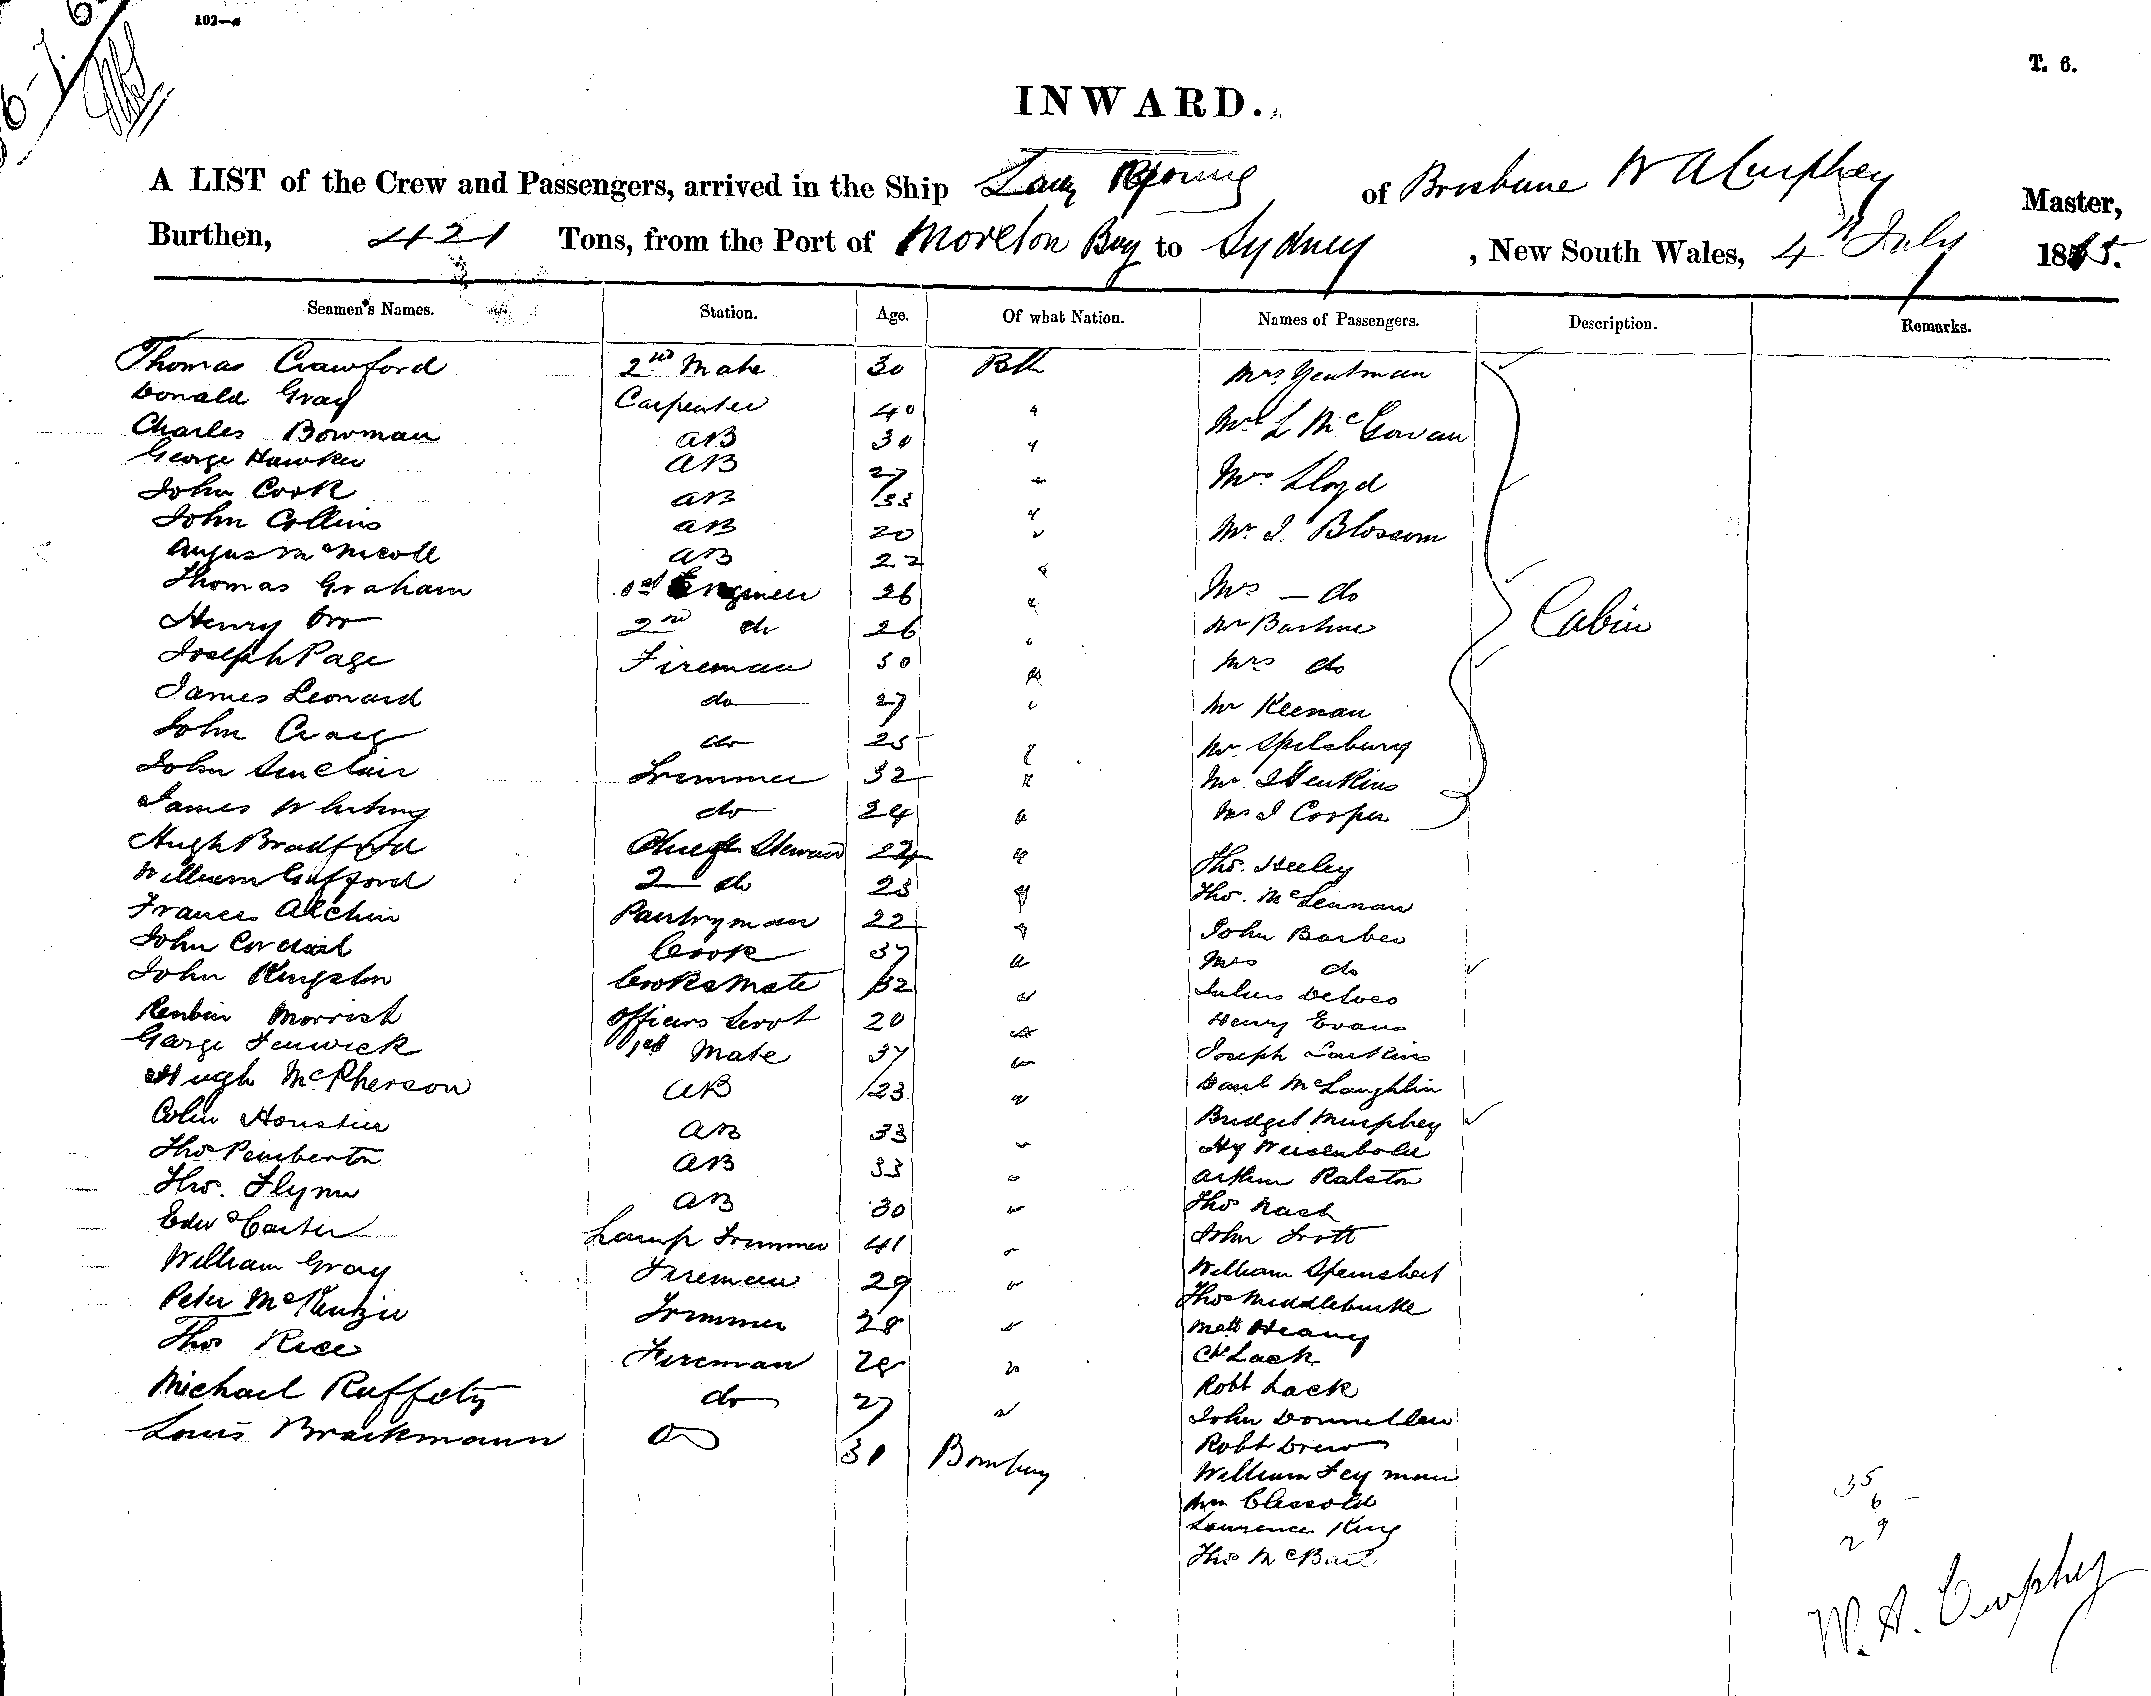 102—a
T. 6.
INWARD.
A LIST of the Crew and Passengers, arrived in the Ship Lady Young of Brisbane W A Curphey Master,
Burthen, 421 Tons, from the Port of Moreton Bay to Sydney, New South Wales, 4th July 1865.
Seamen's Names. Station. Age. Of what Nation. Names of Passengers. Description. Remarks.
Thomas Crawford 2nd Mate 30 Mrs Yeatman
Donald Gray Carpenter 40 " L McGowan
Charles Bowman AB 30 "
George Hawker AB 27 " Mrs Lloyd
John Cook AB 33 "
John Collins AB 20 " Mr J. Blossom
Angus McNicoll AB 22 "
Thomas Graham 1st Engineer 26 " Mrs — do Cabin
Henry Orr 2nd do 26 "
Joseph Page Fireman 30 " Mrs do
James Leonard do 27 " Mr Keenan
John Craig do 25 " Mr Spilsbury
John Sinclair Trimmer 32 " Mr Jenkins
James Whiting do 24 " J Cooper
Hugh Bradford Chief Steward 24 " Thos. Heeley
William Gifford 2 do 23 " Thos. McLennan
Frances Alchin Pantryman 22 " John Barber
John Cook 37 " Mrs do
John Kingston Cooks Mate 32 " Julius
Reubin Morrish Officers Servt 20 " Henry Evans
George Fenwick 1st Mate 37 " Joseph Larkins
Hugh McPherson AB 23 " McLaughlin
Colin AB 33 " Bridget Murphey
Thos Pemberton AB 33 " Hy
Arthur Ralston
Thos. Flynn AB 30 " Thos Nash
Edwd Carter Lamp Trimmer 41 " John Trott
William Gray Fireman 29 " William
Thos
Peter McKenzie Trimmer 28 " Matt Heany
Thos Rice Fireman 28 " Lack
Michael Raffety do 27 " Robt Lack
John Donnellan
Louis Brackmann do 30 Bombay Robt Drew
William
Wm Clissold
Lawrence King
Thos
35
6
29
W. A. Curphey